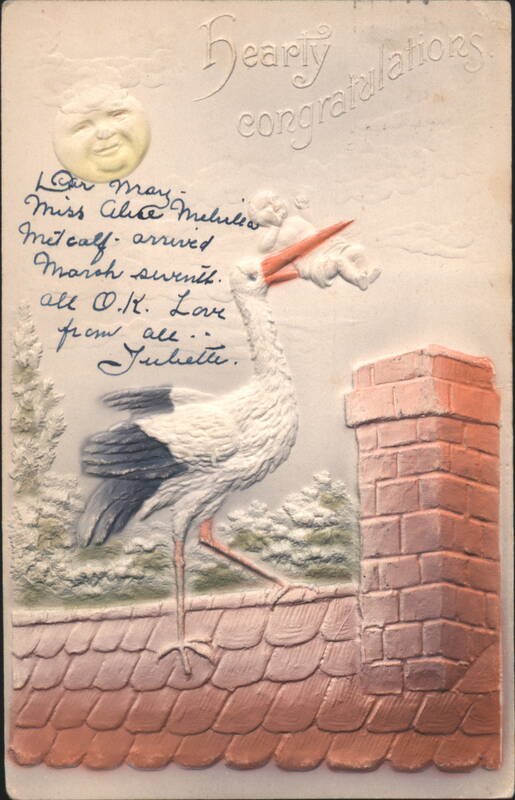 Hearty
congratulations.
Dear May-
Miss Alice
Metcalf - arrived
March seventh.
all O.K. Love
from all..
Juliette.